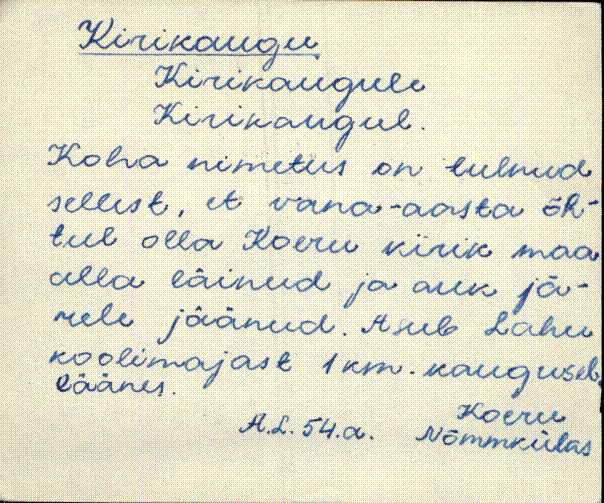 Kirikaugu
Kirikaugule
Kirikaugul.
Koha nimetus on tulnud
sellest, et vana-aasta õh-
tul olla Koeru kirik maa
alla läinud ja auk jä-
rele jäänud. Asub Lahu
koolimajast 1 km. kaugusel
läänes.
A.L. 54.a.
Koeru
Nõmmkülas